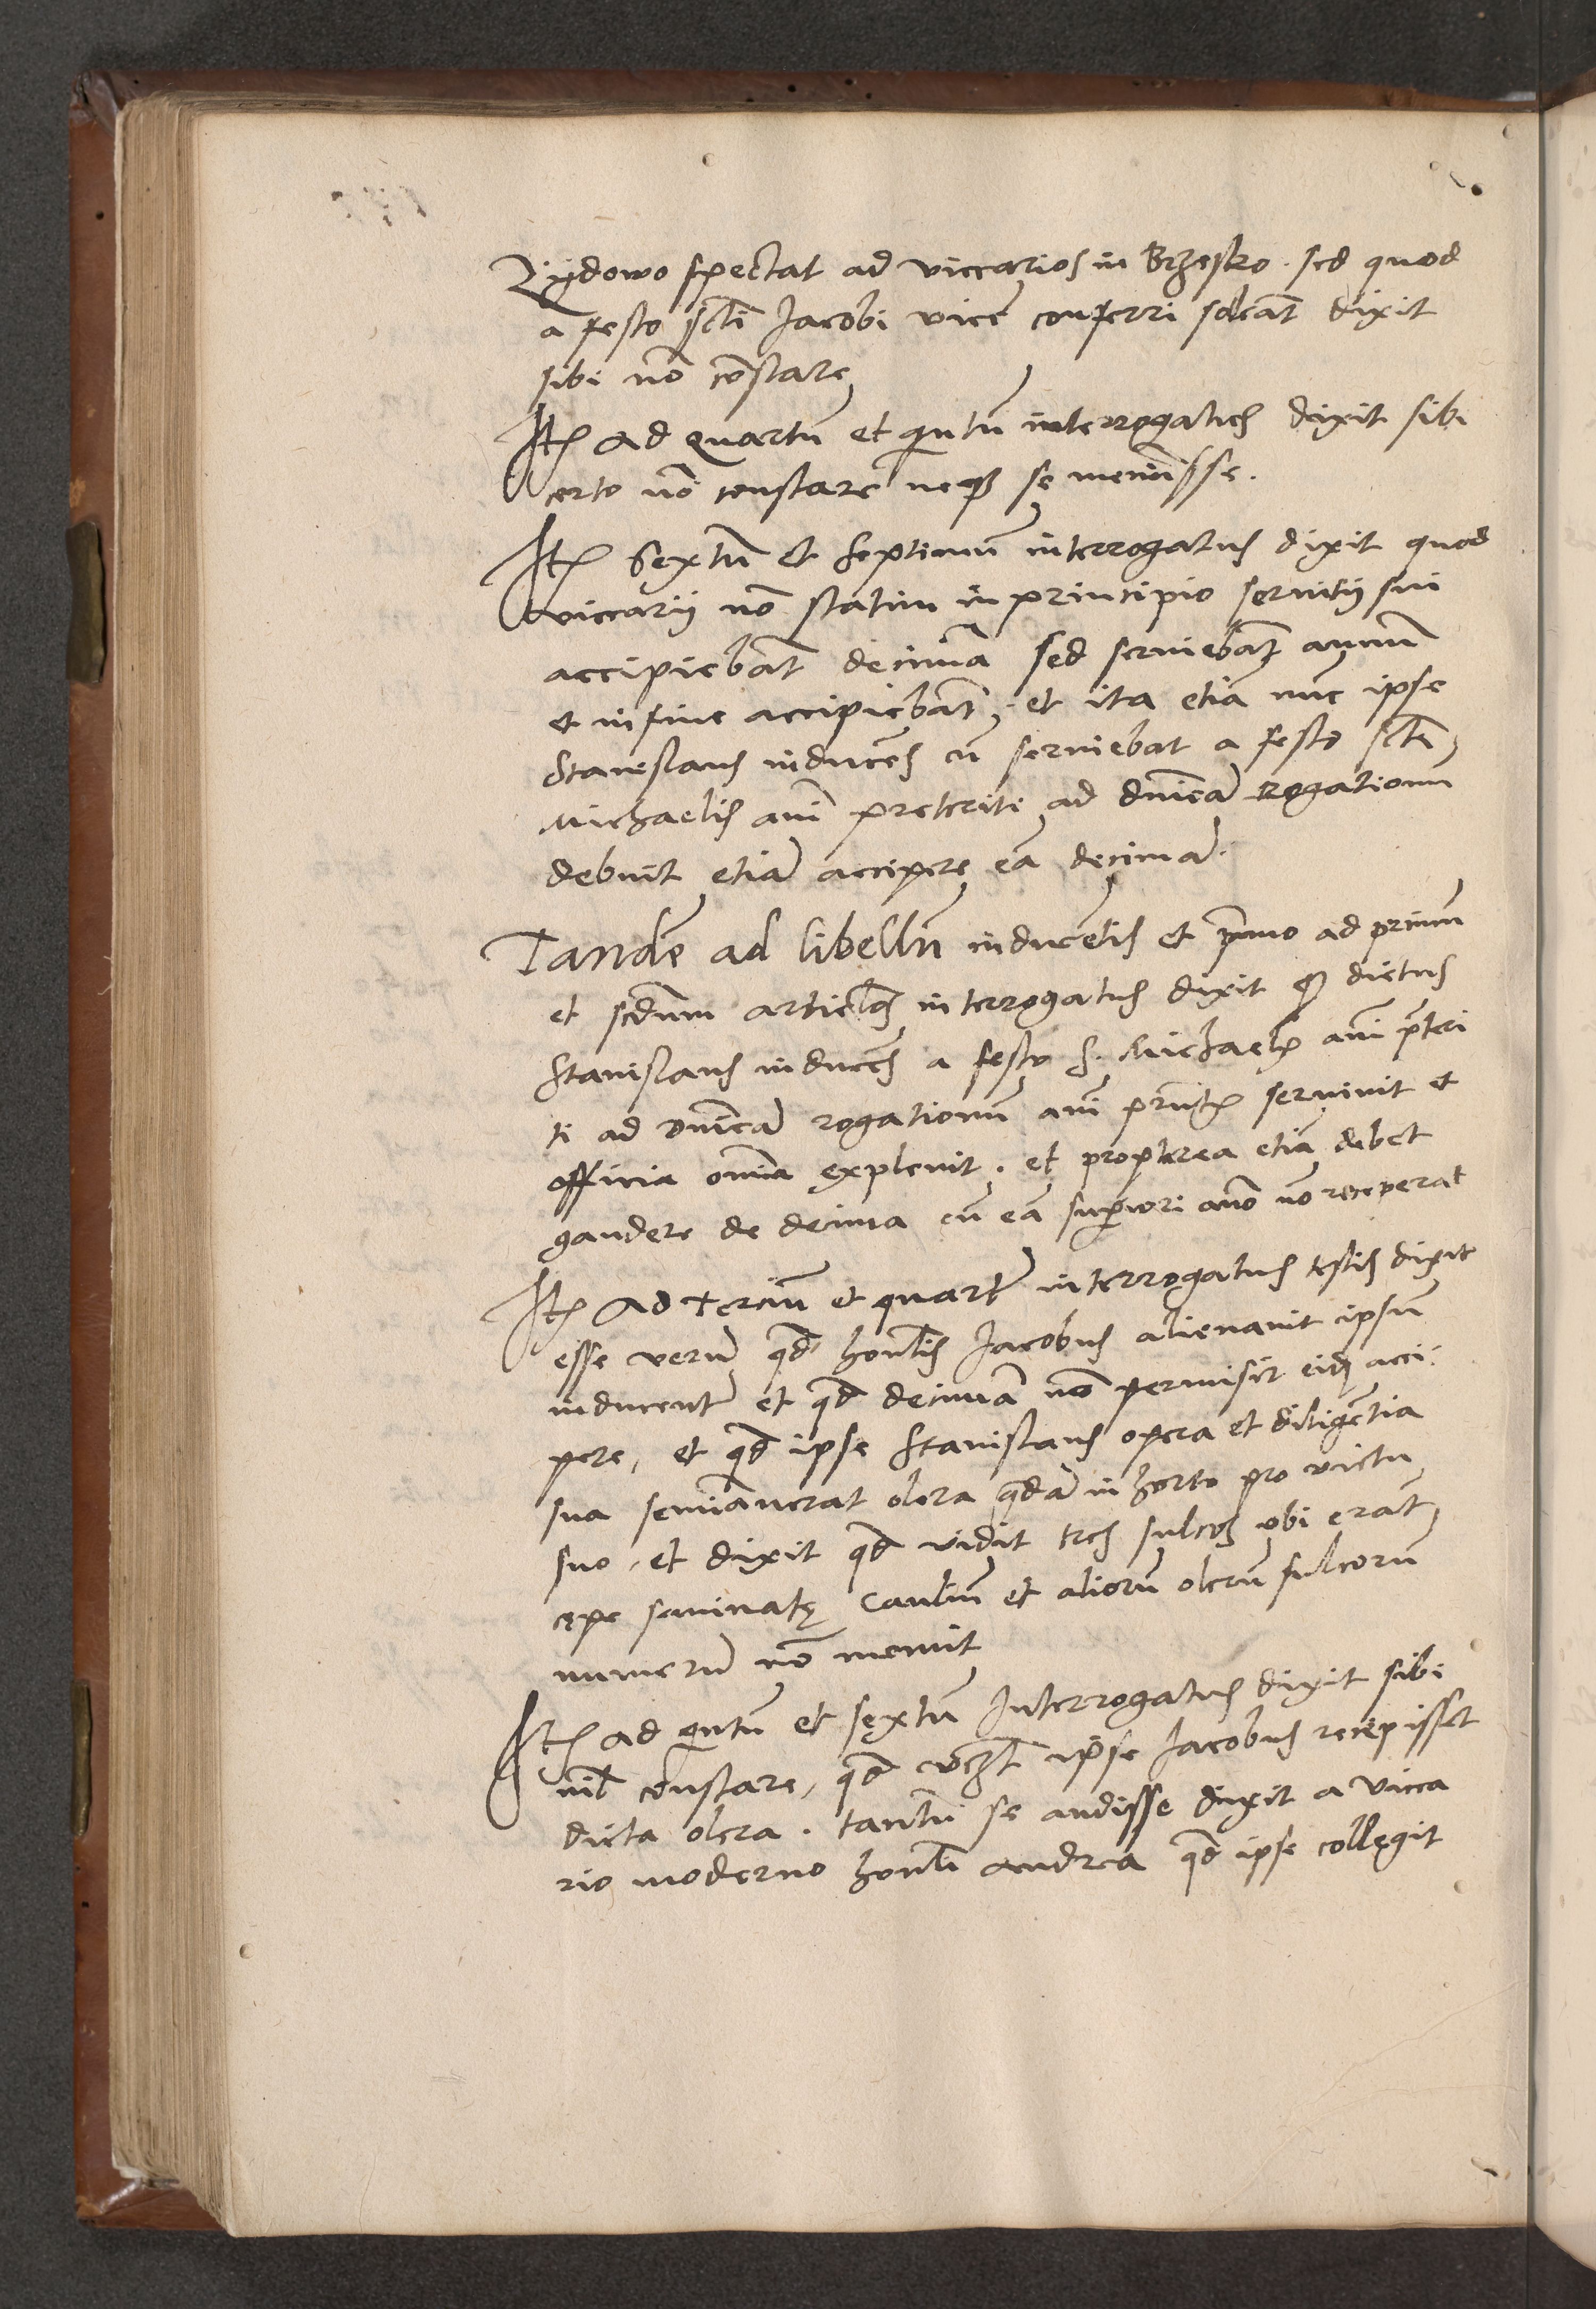 Zydowo spectat ad viccarios in Brzesko. sed quod
a festo scti Jacobi vicē conferri soleāt dixit
sibi nō cōstare
Itē Ad quartū et qintū interrogatus dixit sibi
certo nō constare neqȝ se meminisse.
Itē Sextū et septimū interrogatus dixit quod
viccarij nō statim in principio seruitij sui
accipiebāt decimā sed seruiebāt annū
et in fine accipiebāt. et ita etiā nūc ipse
Stanislaus inducēs cū seruiebat a festo scti
Michaelis ani preteriti ad dnicā rogationū
debuit etiā accipere eā decimā.
Tandē ad libellū inducētis et pmo ad primū
et scdum articlos interrogatus dixit qȝ dictus
Stanislaus inducēs a festo S. Michaelis ani pteri
ti ad dnicā rogationū ani pntis seruiuit et
officia omia expleuit. et propterea etiā debet
gaudere de decima cū eā supiori anō nō receperat
Itē Ad terciū et quartū interrogatus testis dixit
esse verū qd honlis Jacobus alienauit ipsū
inducentē et qd decimā nō permisit eidē acci:
pere, et qd ipse Stanislaus opera et diligētia
sua semīauerat olera qdā in horto pro victu
suo, et dixit qd vidit tres sulcos vbi erāt
cepe seminatę Cauliū et aliorū olerū sulcorū
numerū nō memit
Itē ad qintū et sextū Interrogatus dixit sibi
nil constare, qd vꝫlt ipse Jacobus recepisset
dicta olera. tantū se audisse dixit a vicca
rio moderno honli Andrea qd ipse collegit